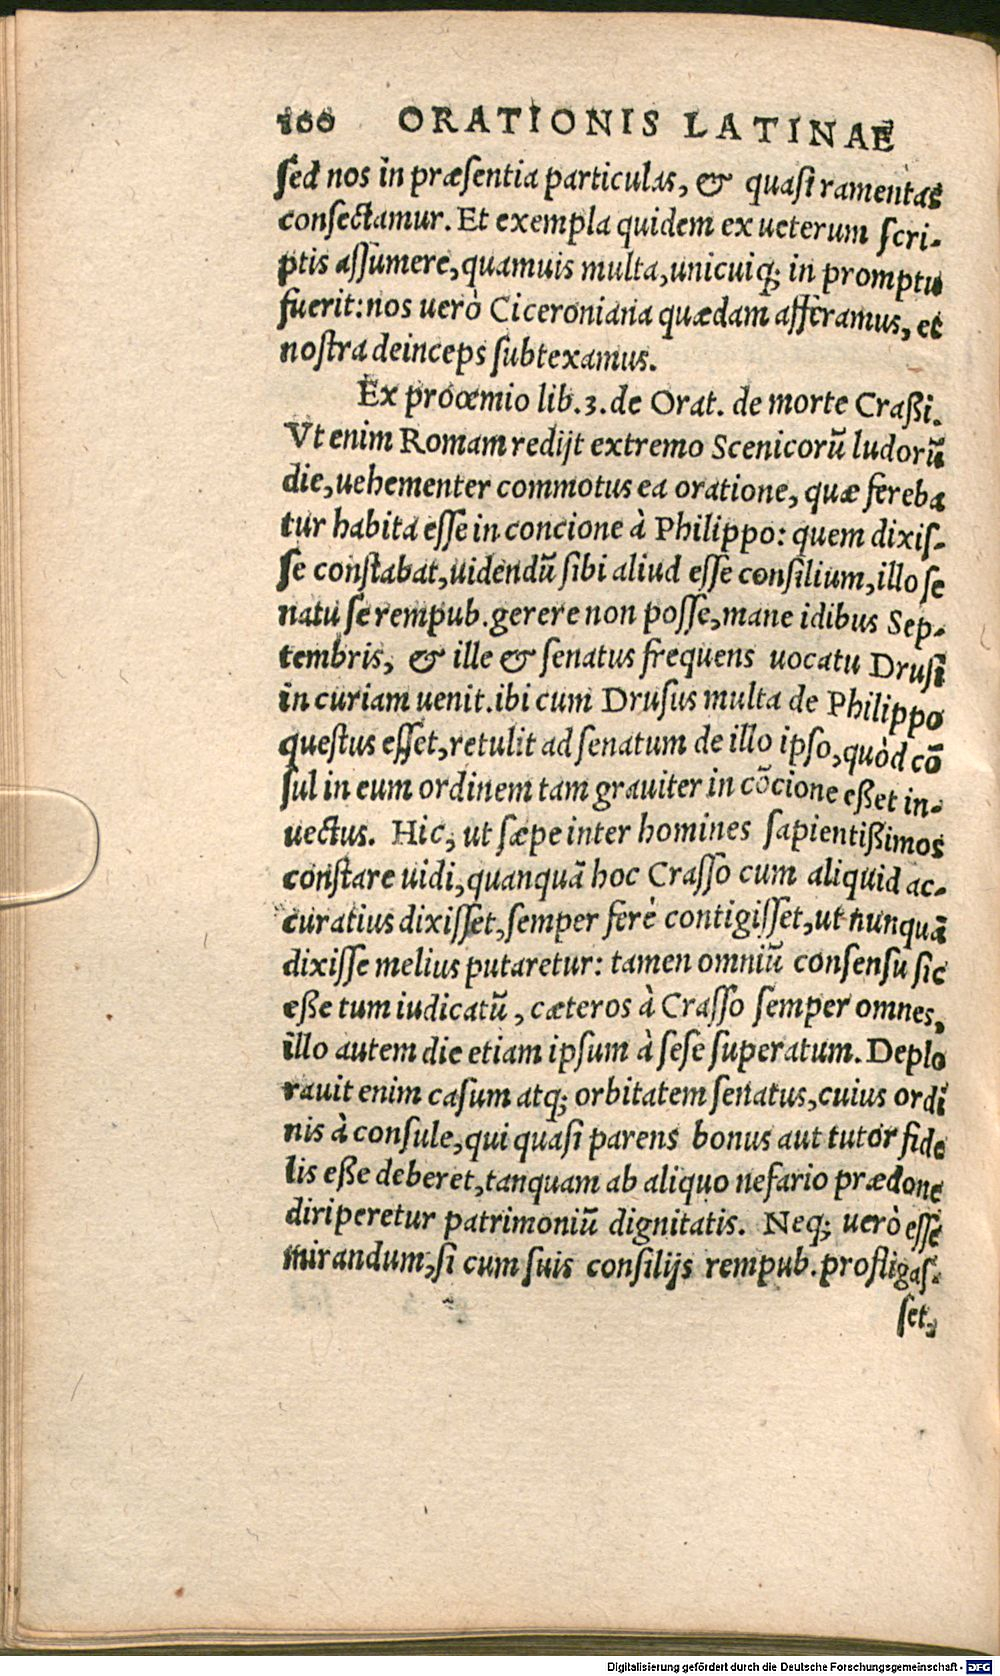 100 ORATIONIS LATINAE
sed nos in præsentia particulas, & quasi ramentas
consectamur. Et exempla quidem ex ueterum scri-
ptis assumere, quamuis multa, unicuiq; in promptu
fuerit: nos uerò Ciceroniana quædam afferamus, et
nostra deinceps subtexamus.
Ex proœmio lib. 3. de Orat. de morte Craßi.
Vt enim Romam redijt extremo Scenicorū ludorū
die, uehementer commotus ea oratione, quæ fereba
tur habita esse in concione à Philippo: quem dixis-
se constabat, uidendū sibi aliud esse consilium, illo se
natu se rempub. gerere non posse, mane idibus Sep-
tembris, & ille & senatus frequens uocatu Drusi
in curiam uenit. ibi cum Drusus multa de Philippo
questus esset, retulit ad senatum de illo ipso, quòd cō
sul in eum ordinem tam grauiter in cōcione eßet in-
uectus. Hic, ut sæpe inter homines sapientißimos
constare uidi, quanquā hoc Crasso cum aliquid ac-
curatius dixisset, semper ferè contigisset, ut nunquā
dixisse melius putaretur: tamen omniū consensu sic
eße tum iudicatū, cæteros à Crasso semper omnes,
illo autem die etiam ipsum à sese superatum. Deplo
rauit enim casum atq; orbitatem senatus, cuius ordi
nis à consule, qui quasi parens bonus aut tutor fide
lis eße deberet, tanquam ab aliquo nefario prædone
diriperetur patrimoniū dignitatis. Neq; uerò esse
mirandum, si cum suis consilijs rempub. profligas-
set,
Digitalisierung gefördert durch die Deutsche Forschungsgemeinschaft - DFG